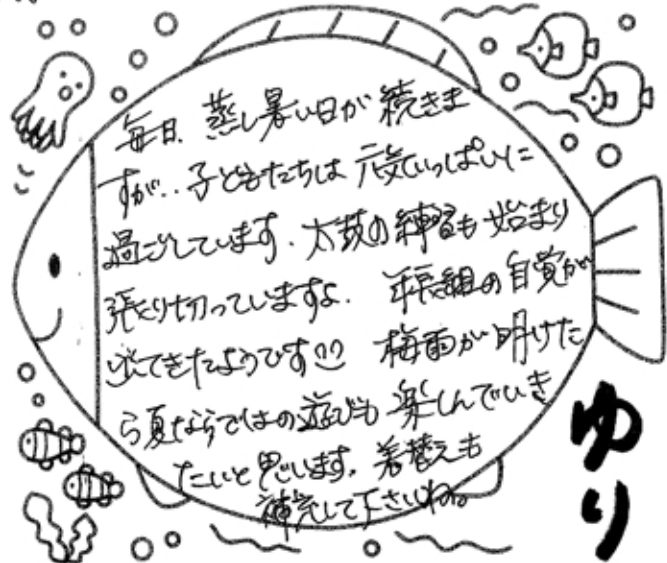 毎日、蒸し暑い日が続きま
すが、子どもたちは元気いっぱいに
過ごしています。太鼓の練習も始まり
張り切っていますよ。年長組の自覚が
出てきたようです
梅雨が明けた
ら夏ならではの遊びも楽しんでいき
たいと思います。着替えも
補充して下さいね。
ゆり